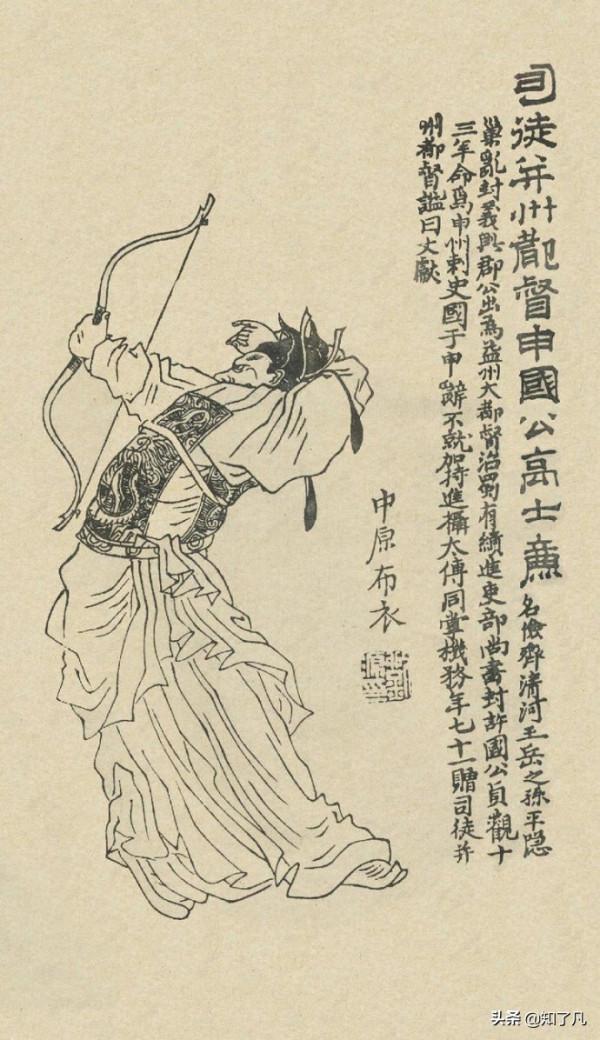 司徒并州都督申國公高士廉 名儉齊清河王岳之孫平隱
巢亂封義興郡公出為益州大都督治蜀有績進吏部尚書封許國公貞觀十
三年命為申州刺史國于申辭不就加持進攝太傅同掌機務年七十一贈司徒并
州都督謚曰文獻
中原布衣
头条 @知了凡